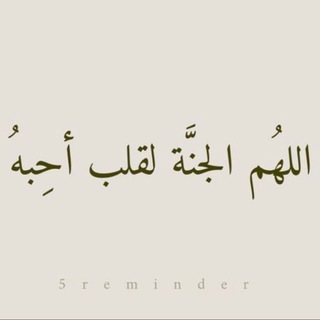 اللهُم الجنَّة لقلب أحِبهُ
5reminder